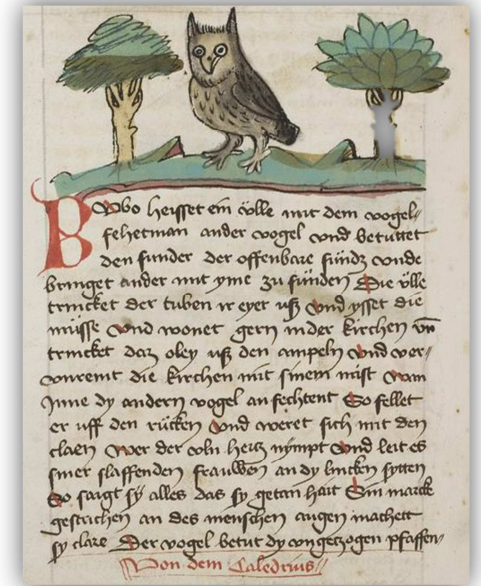 Bwbo heisset ein vlle mit dem vogel
fehetman ander vogel vnd betuttet
den sunder der offenbare sündz vnde
bringet ander mit yme zu sünden Die vlle
trincket der tuben ir eyer uß Vnd ysset die
müsse Vnd wonet gern inder kirchen vn̄
trincket daz oley uß den ampeln Vnd ver
vnremt die kirchen mit sinem mist Wan
Inne dy andern vogel an fechtent So fellet
er uff den rücken Vnd weret sich mit den
claen Wer der vln hertz nympt Vnd leit es
siner slaffenden frauwen an dy lincken sytten
So saigt sy alles das sy getan hait Sin marck
gestrichen an des menschen augen machett
sy clare Der vogel betut dy vngetzogen pfaffen
Von dem Caledrius